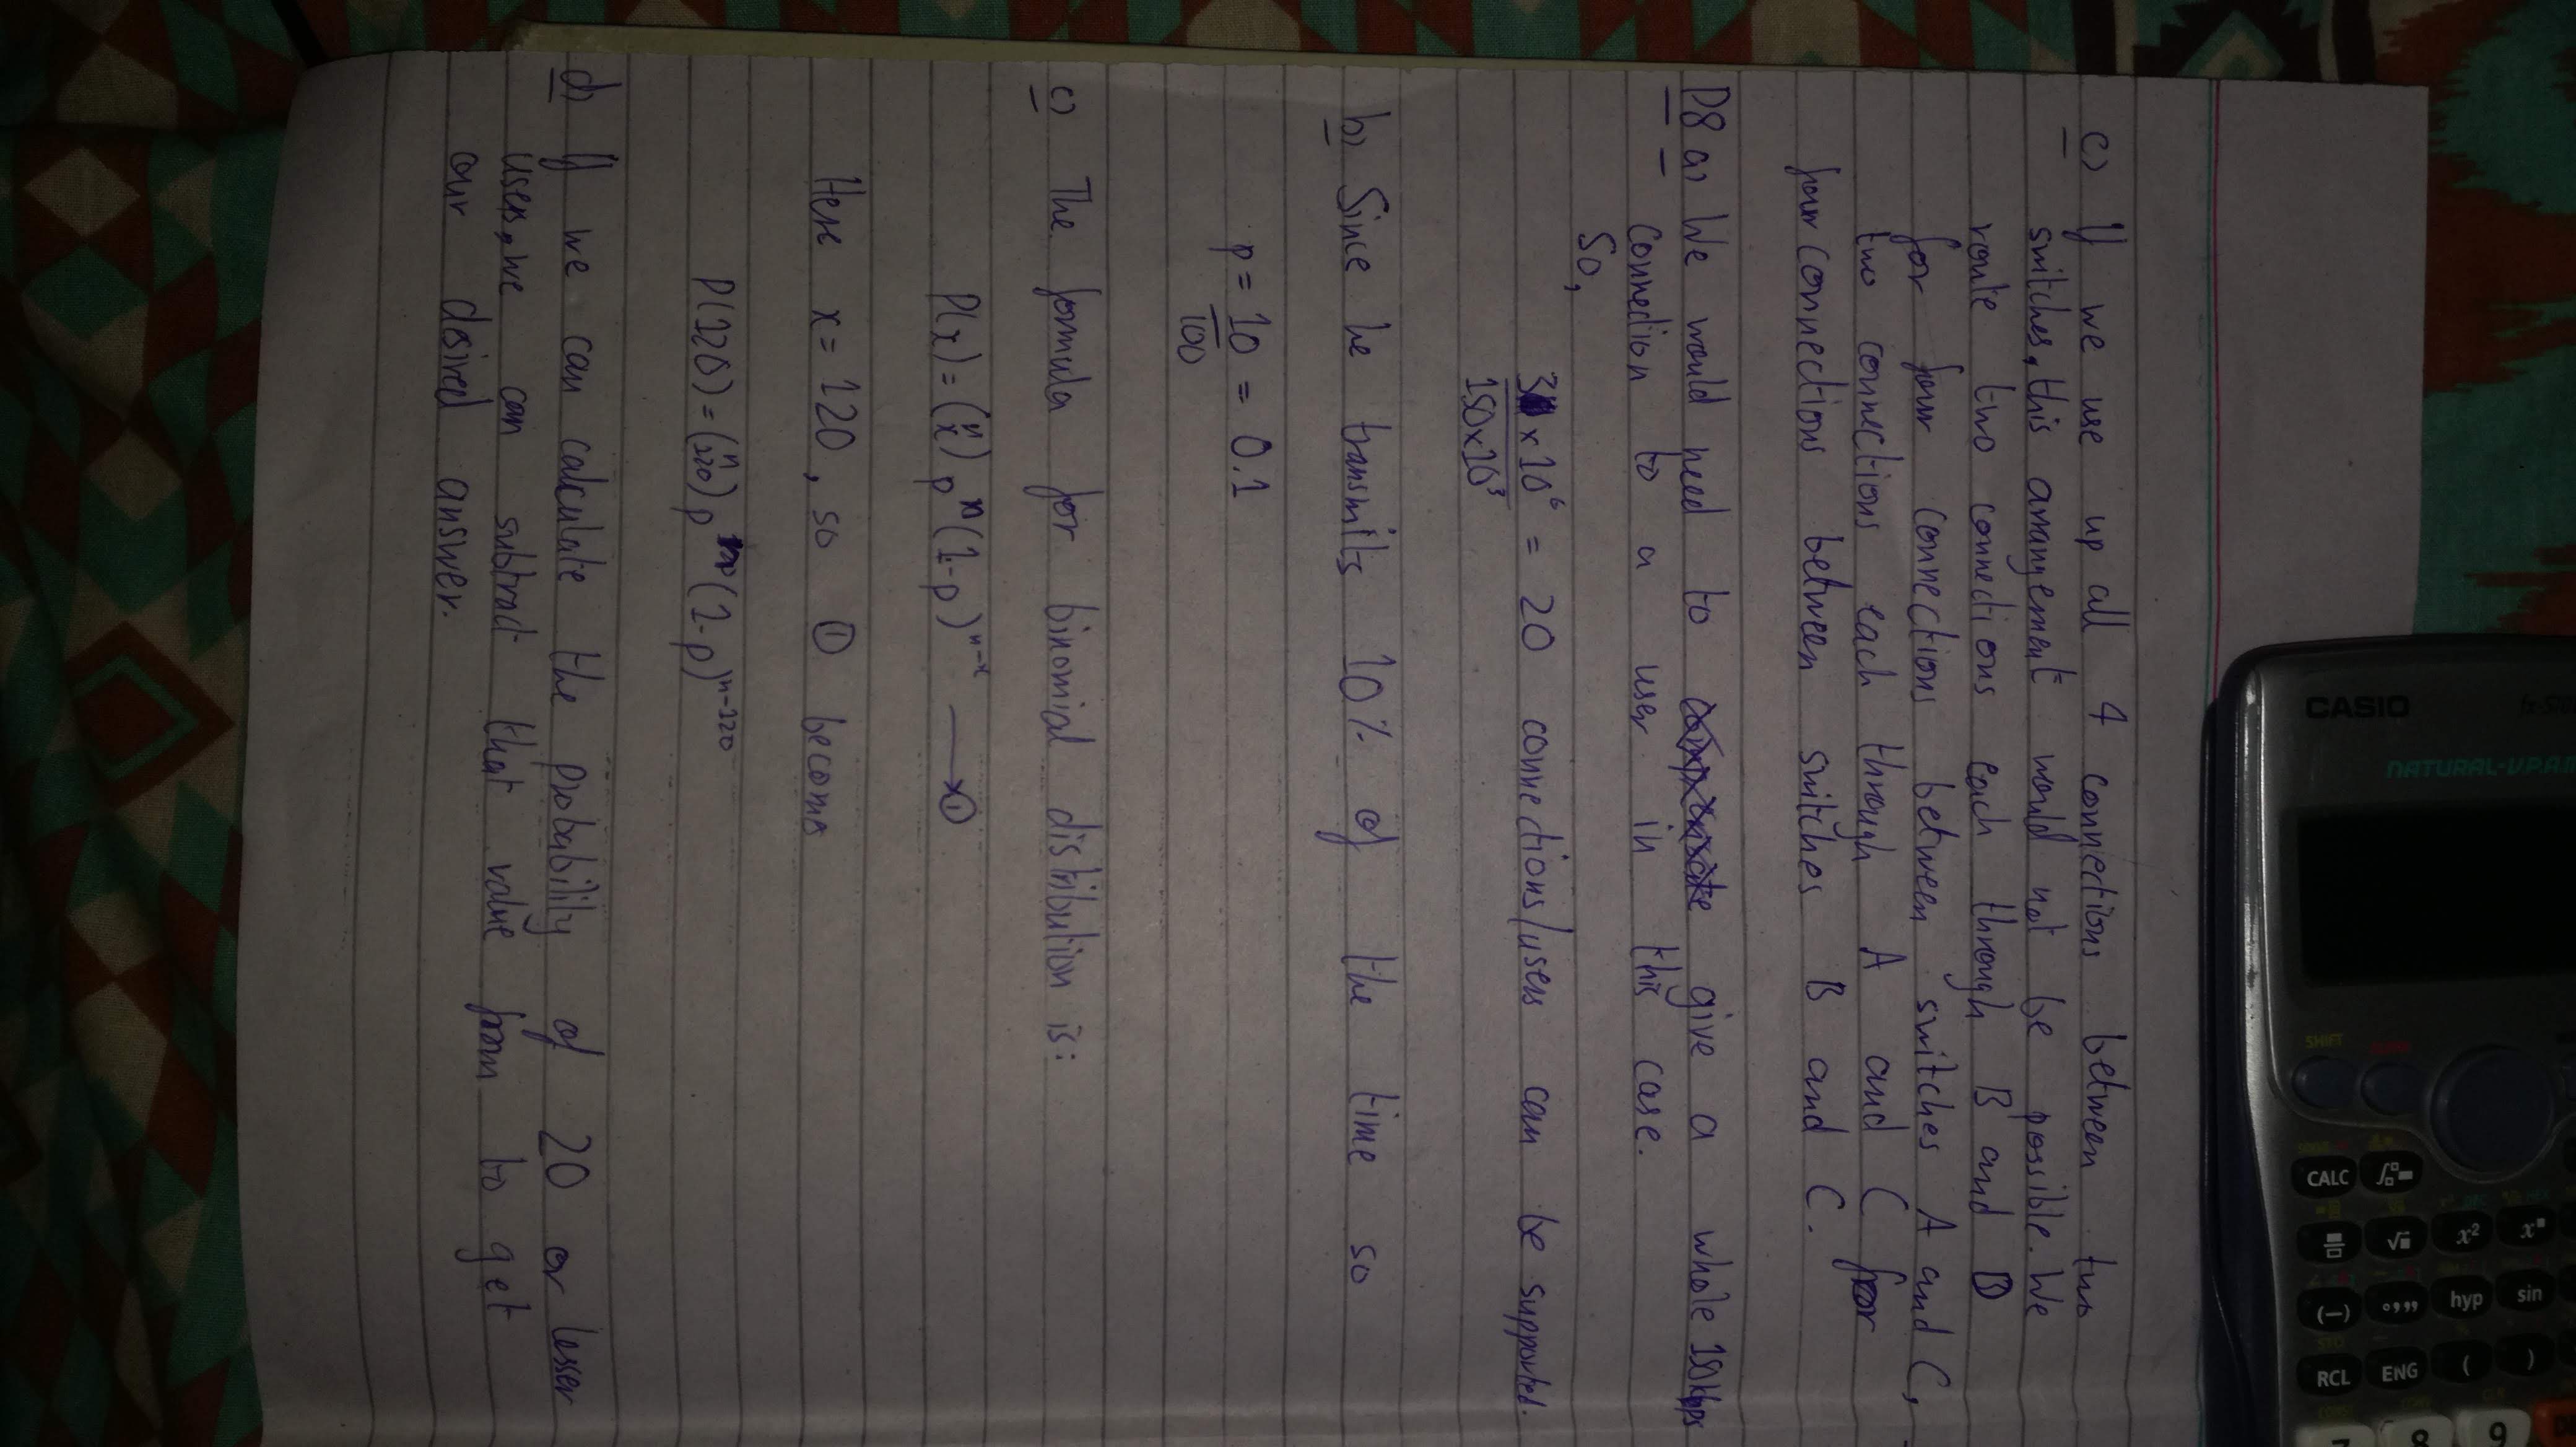 CASIO
NATURAL-V.P.A.M.
SHIFT
CALC
x²
x■
√■
hyp
sin
(-)
°,,,
RCL
ENG
(
)
7
8
9
c) If we use up all 4 connections between two
switches, this arrangement would not be possible. We
route two connections each through B and D
for four connections between switches A and C,
two connections each through A and C for
four connections between switches B and C.
P8 a) We would need to give a whole 150kbps
connection to a user in this case.
So,
3 x 10⁶ = 20 connections/users can be supported.
150x10³
b) Since he transmits 10% of the time so
p = 10 = 0.1
100
c) The formula for binomial distribution is:
P(x) = (n x) p (1-p)ⁿ⁻ˣ → ①
Here x = 120, so ① becomes
P(120) = (n 120) p (1-p)ⁿ⁻¹²⁰
d) If we can calculate the probability of 20 or lesser
users, we can subtract that value from to get
our desired answer.